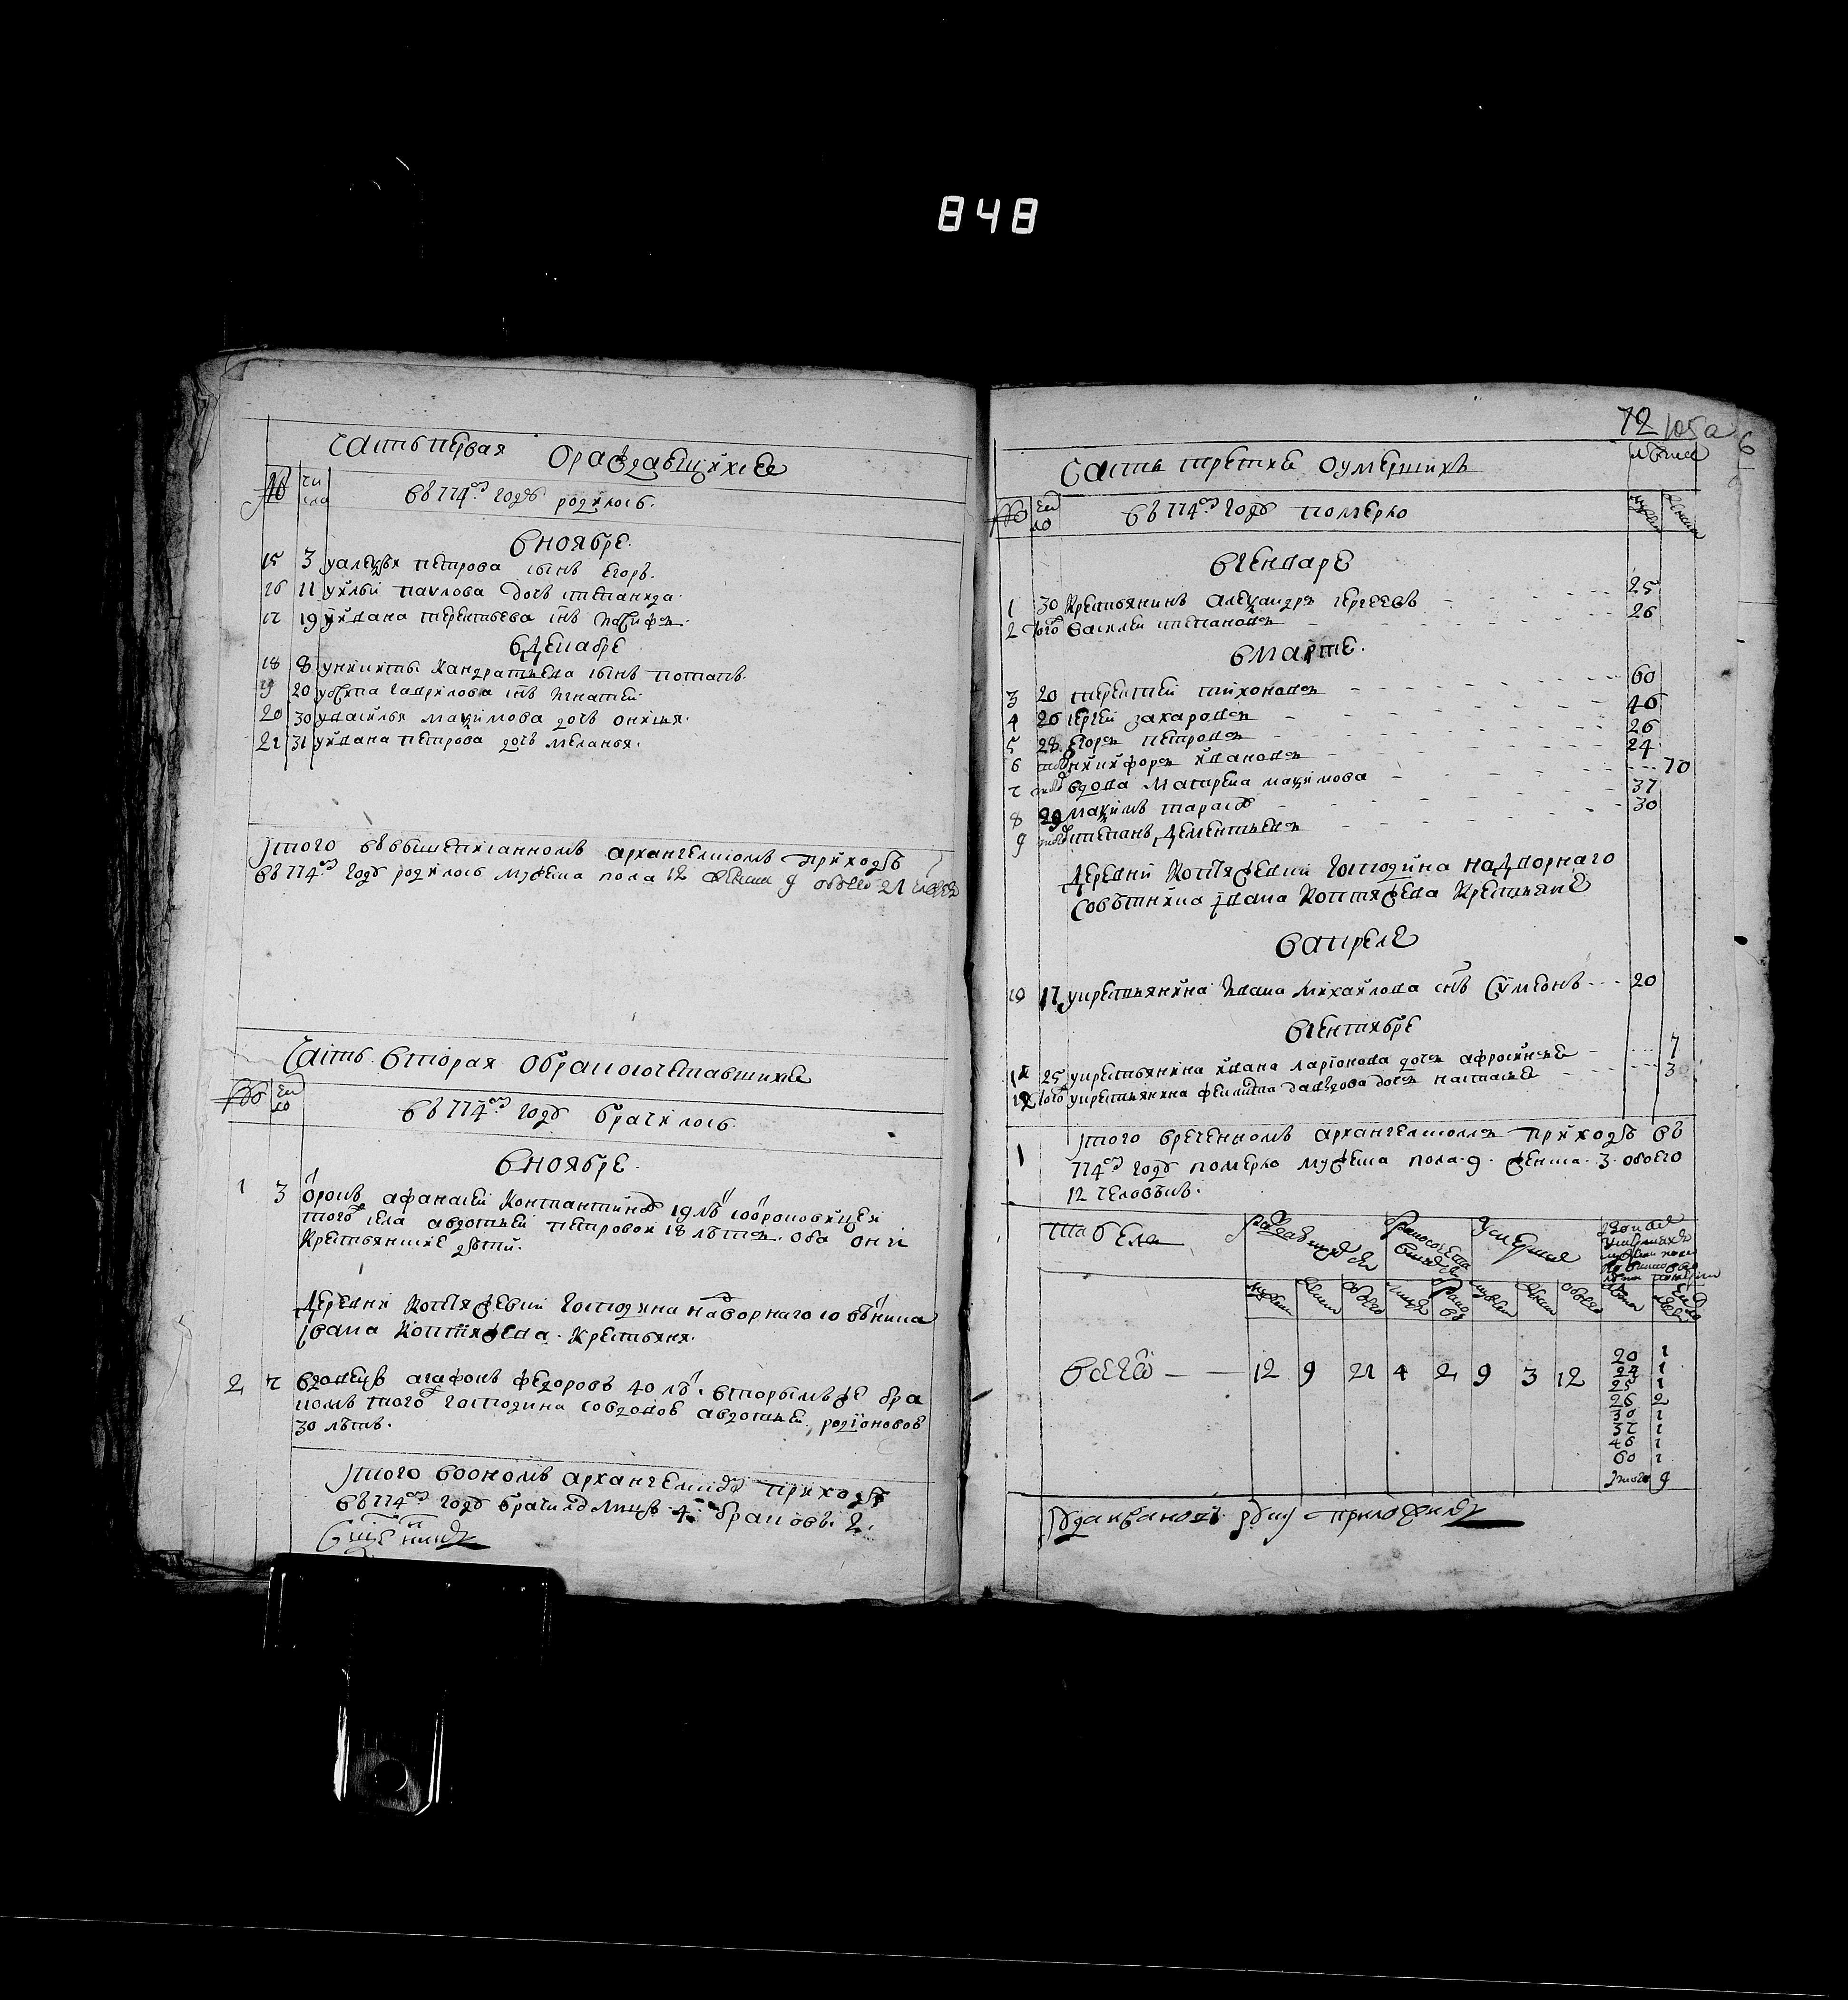 848
Часть первая о раждавшихся
№ числа в 774м годѣ родилось.
в ноябре.
15 3 у алеѯѣя петрова сынъ егоръ.
16 11 у ильи павлова дочь степанида.
17 19 у ивана терентьева снъ иосифъ.
в декабре
18 8 у никиты кандратьева сынъ потапъ.
19 20 у осипа гаврилова снъ игнатей
20 30 у василья маѯимова дочь онисья.
21 31 у ивана петрова дочь меланья.
Итого в вышеписанномъ архангелскомъ приходѣ
в 774м годѣ родилось мужеска пола 12 женска 9 обоего 21 человекъ
Часть вторая о бракосочетавшихся
№ число в 774м годѣ брачилось.
в ноябре.
1 3 отрокъ афанасей константиновъ 19 лѣт с отроковицей
того села авдотьей петровой 18 лѣтъ оба они
крестьянские дѣти.
деревни коптяжевки господина надворнаго совѣтника
ивана коптяжева крестьяня.
2 7 вдовецъ агафонъ федоровъ 40 лѣт вторымъ же бра
комъ того господина со вдовой авдотьей родионовой
30 лѣтъ.
Итого в ономъ архангелском приходѣ
в 774м годѣ брачилос лицъ 4 браковъ 2.
Сщенникъ
72 105а
6
Часть третия о умершихъ лѣта
№ число в 774м годѣ померло мужеск женска
в генваре
1 30 крестьянинъ алеѯандръ сергеевъ 25
2 того василей степановъ 26
в марте.
3 20 терентей тихоновъ 60
4 26 сергей захаровъ 46
5 28 егоръ петровъ 26
6 того никифоръ ивановъ 24
7 того вдова матрена маѯимова 70
8 29 маѯимъ тарасов 37
9 того степанъ дементьевъ 30
деревни коптяжевки господина надворнаго
совѣтника ивана коптяжева крестьяне
в апреле
10 17 у крестьянина ивана михайлова снъ сумеонъ 20
в сентябре
11 25 у крестьянина ивана ларионова дочь афросинья 7
12 того у крестьянина филипа давыдова дочь настасья 3
1 Итого в реченномъ архангелскомъ приходѣ въ
774м годѣ померло мужеска пола 9 женска 3 обоего
12 человѣкъ.
табель раждавшихся бракосочетавшихся умершие
мужеск женск обоего лицъ браковъ мужеск женск обоего лѣта
всего 12 9 21 4 2 9 3 12
20 1
24 1
25 1
26 2
30 1
37 1
46 1
60 1
Итого 9
руку приложилъ